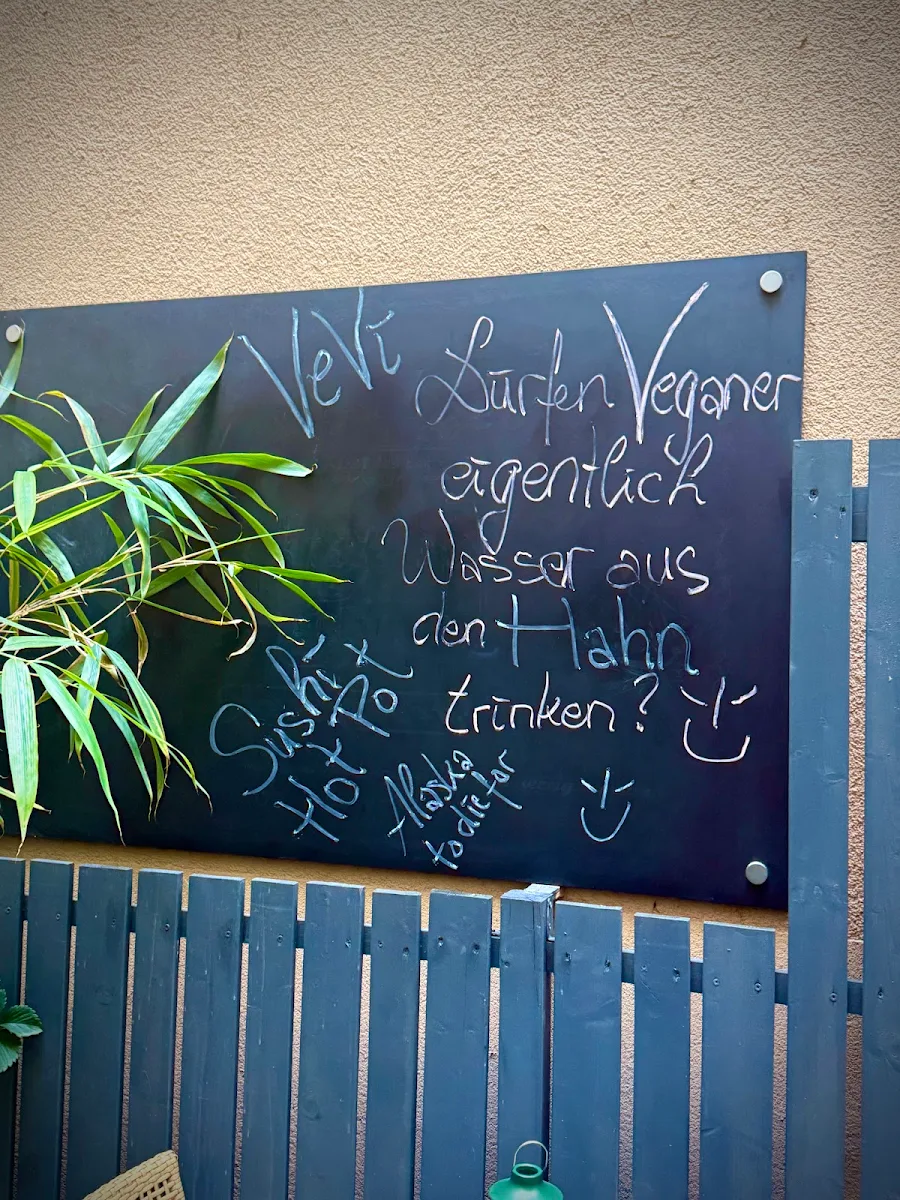 VeVi
Dürfen Veganer
eigentlich
Wasser aus
den Hahn
trinken?
Sushi +
Hot Pot
Alaska
to die for